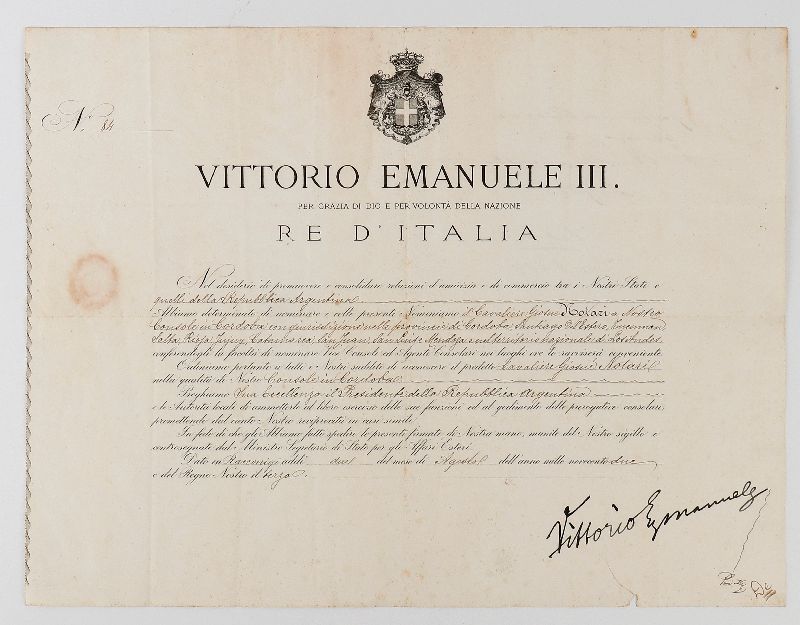 N. 84
VITTORIO EMANUELE III.
PER GRAZIA DI DIO E PER VOLONTÀ DELLA NAZIONE
RE D'ITALIA
Nel desiderio di promuovere e consolidare relazioni d'amicizia e di commercio tra i Nostri Stati e
quelli della Repubblica Argentina
Abbiamo determinato di nominare e colle presenti Nominiamo il Cavaliere Notari a Nostro
Console in Cordoba con giurisdizione sulle provincie di Cordoba, Santiago del Estero, Tucuman
Salta, Rioja, Jujuy, Catamarca, San Juan, San Luis, Mendoza e sul territorio nazionale di Los Andes
conferendogli la facoltà di nominare Vice Consoli ed Agenti Consolari nei luoghi ove lo ravviserà conveniente.
Ordiniamo pertanto a tutti i Nostri sudditi di riconoscere il predetto Cavaliere Notari
nella qualità di Nostro Console in Cordoba
Preghiamo Sua Eccellenza il Presidente della Repubblica Argentina
e le Autorità locali di ammetterlo al libero esercizio delle sue funzioni ed al godimento delle prerogative consolari
promettendo dal canto Nostro reciprocità in casi simili.
In fede di che gli Abbiamo fatto spedire le presenti firmate di Nostra mano, munite del Nostro sigillo e
contrassegnate dal Ministro Segretario di Stato per gli Affari Esteri.
Dato in Racconigi addì due del mese di Agosto dell'anno mille novecento due
e del Regno Nostro il terzo.
Vittorio Emanuele